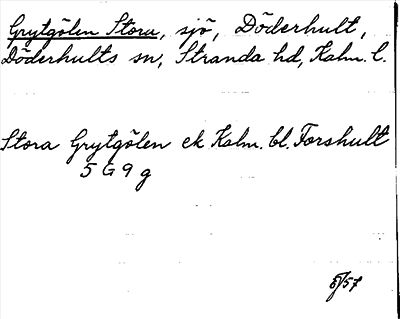 Grytgölen Stora, sjö, Döderhult,
Döderhults sn, Stranda hd, Kalm. l.
Stora Grytgölen ek Kalm. bl. Forshult
5 G 9 g
/57